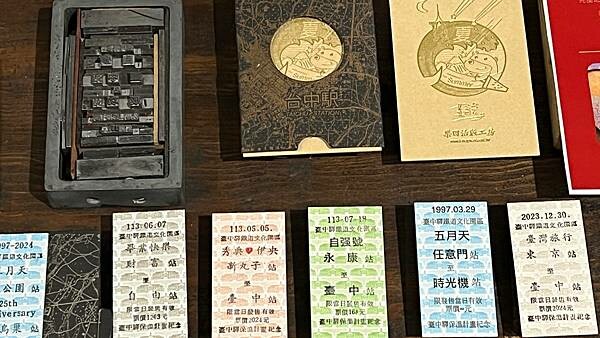 夏
Summer
台中駅
TAICHU STATION
夏
Summer
栗田活版工房
1997-2024
五月天
公園 站
25th
niversary
鳥巢 站
113.06.07
臺中驛鐵道文化園區
畢業快樂
財富 站
至
自由 站
限當日發售有效
票價1243元
臺中驛保溫計畫紀念
113.05.05.
臺中驛鐵道文化園區
秀典♥伊央
新丸子 站
至
臺中 站
限當日發售有效
票價2024元
臺中驛保溫計畫紀念
113-07-18
臺中驛鐵道文化園區
自强號
永康 站
至
臺中 站
限當日發售有效
票價168元
臺中驛保溫計畫紀念
1997.03.29
臺中驛鐵道文化園區
五月天
任意門 站
至
時光機 站
限發售當日有效
票價∞元
臺中驛保溫計畫紀念
2023.12.30.
臺中驛鐵道文化園區
臺灣旅行
東京 站
至
臺中 站
限當日發售有效
票價2024元
臺中驛保溫計畫紀念